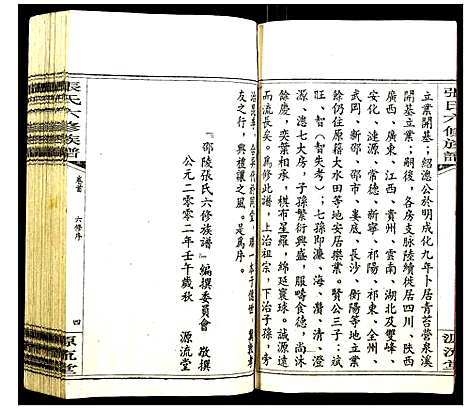 張氏六修族譜
立業開基；紹總公於明成化九年卜居青苔營泉溪
開基立業；嗣後，各房支脈陸續徙居四川、陝西
廣西、廣東、江西、貴州、雲南、湖北及雙峰、
安化、漣源、常德、新寧、祁陽、祁東、全州、
武岡、新邵、邵市、婁底、長沙、衡陽等地立業，
餘仍住原籍大水田等地安居樂業。賢公三子，
與、智（智失考）；七孫即源、海、潛、清、澄
浩、總七大房，子孫繁衍興盛，服疇食德，尚沐
餘慶，奕葉和祥，棋布星羅，綿延寰球。誠源遠
而流長矣。為修此譜，上治祖宗，下治子孫，旁
治昆季，
友之行，興禮讓之風。是為序。
『邵陵張氏六修族譜』編撰委員會 敬撰
公元二零零二年壬午歲秋
源流堂
張氏六修族譜
卷首 六修序
四
源流堂